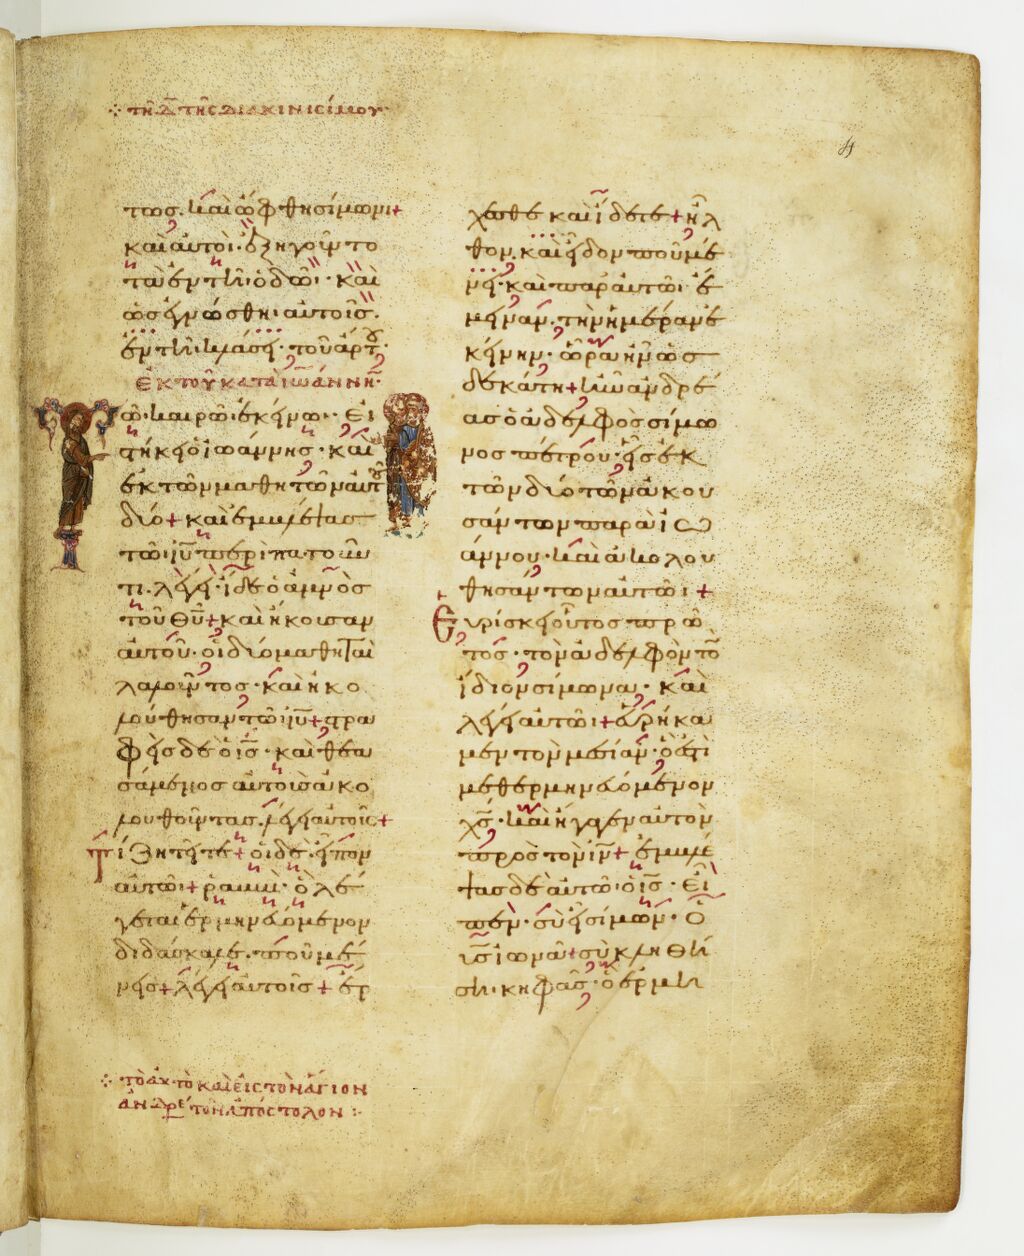 ⁘ τῆ Δ τῆς διακινισίμου
4
τως. καὶ ὤφθη σίμωνι +
καὶ αὐτοὶ. ἐξηγοῦντο
τὰ ἐν τῆ ὁδῶ· καὶ
ὡς ἐγνώσθη αὐτοῖς.
ἐν τῆ κλάσει· τοῦ ἄρτου·
ἐκ τοῦ κατὰ ἰωάννην·
Τῶ καιρῶ ἐκείνω· εἱ
στήκει ὁ ἰωάννης· καὶ
ἐκ τῶν μαθητῶν αὐτοῦ
δύο + καὶ ἐμβλέψας
τῶ ιυ περιπατοῦν
τι. λέγει· ἴδε ὁ ἀμνὸς
τοῦ θυ + καὶ ἤκουσαν
αὐτοῦ· οἱ δύο μαθηταὶ
λαλοῦντος· καὶ ἠκο
λούθησαν τῶ ιυ + στρα
φεὶς δὲ ὁ ις· καὶ θεα
σάμενος αὐτοὺς ἀκο
λουθοῦντας. λέγει αὐτοῖς +
Τί ζητεῖτε + οἱ δὲ εἶπον
αὐτῶ + ῥαββὶ· ὃ λέ
γεται ἑρμηνευόμενον
διδάσκαλε. ποῦ μέ
νεις + λέγει αὐτοῖς + ἔρ
χεσθε καὶ ἴδετε + ἦλ
θον. καὶ εἶδον ποῦ μέ
νει· καὶ παρ αὐτῶ ἔ
μειναν. τὴν ἡμέραν ἐ
κείνην· ὥρα ἦν ὡς
δεκάτη + ἦν ἀνδρέ
ας ὁ ἀδελφὸς σίμω
νος πέτρου· εἷς ἐκ
τῶν δύο τῶν ἀκου
σάντων παρὰ ἰω
άννου· καὶ ἀκολου
θησάντων αὐτῶ +
Εὑρίσκει οὗτος πρῶ
τος· τὸν ἀδελφὸν τὸν
ἴδιον σίμωνα· καὶ
λέγει αὐτῶ + εὑρήκα
μεν τὸν μεσίαν· ὅ ἐστὶ
μεθερμηνευόμενον
χς· καὶ ἤγαγεν αὐτὸν
πρὸς τὸν ιν + ἐμβλέ
ψας δὲ αὐτῶ ὁ ις· εἶ
πεν· σὺ εἶ σίμων· ὁ
υς ἰωνᾶ + σὺ κληθή
ση κηφᾶς· ὃ ἑρμη
⁘ τὸ αὐτὸ καὶ εἰς τὸν ἅγιον
ἀνδρέ τὸν ἀπόστολον :·